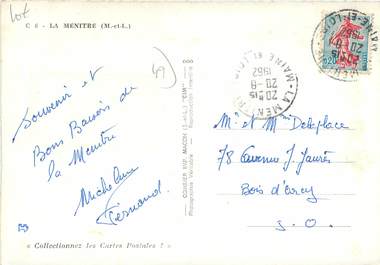 Lot
C 6 - LA MENITRE (M.-et-L.)
49
Souvenir et
Bons Baisers de
la Menitré
Micheline
Fernand.
LA MENITRE
MAINE ET LOIRE
20H15
20 - 9
1962
0,20
Mr et Mme Delaplace
78 avenue J. Jaurès
Bois d'Arcy
S. O.
Photographie Véritable - Reproduction Interdite
« Collectionnez les Cartes Postales ! »